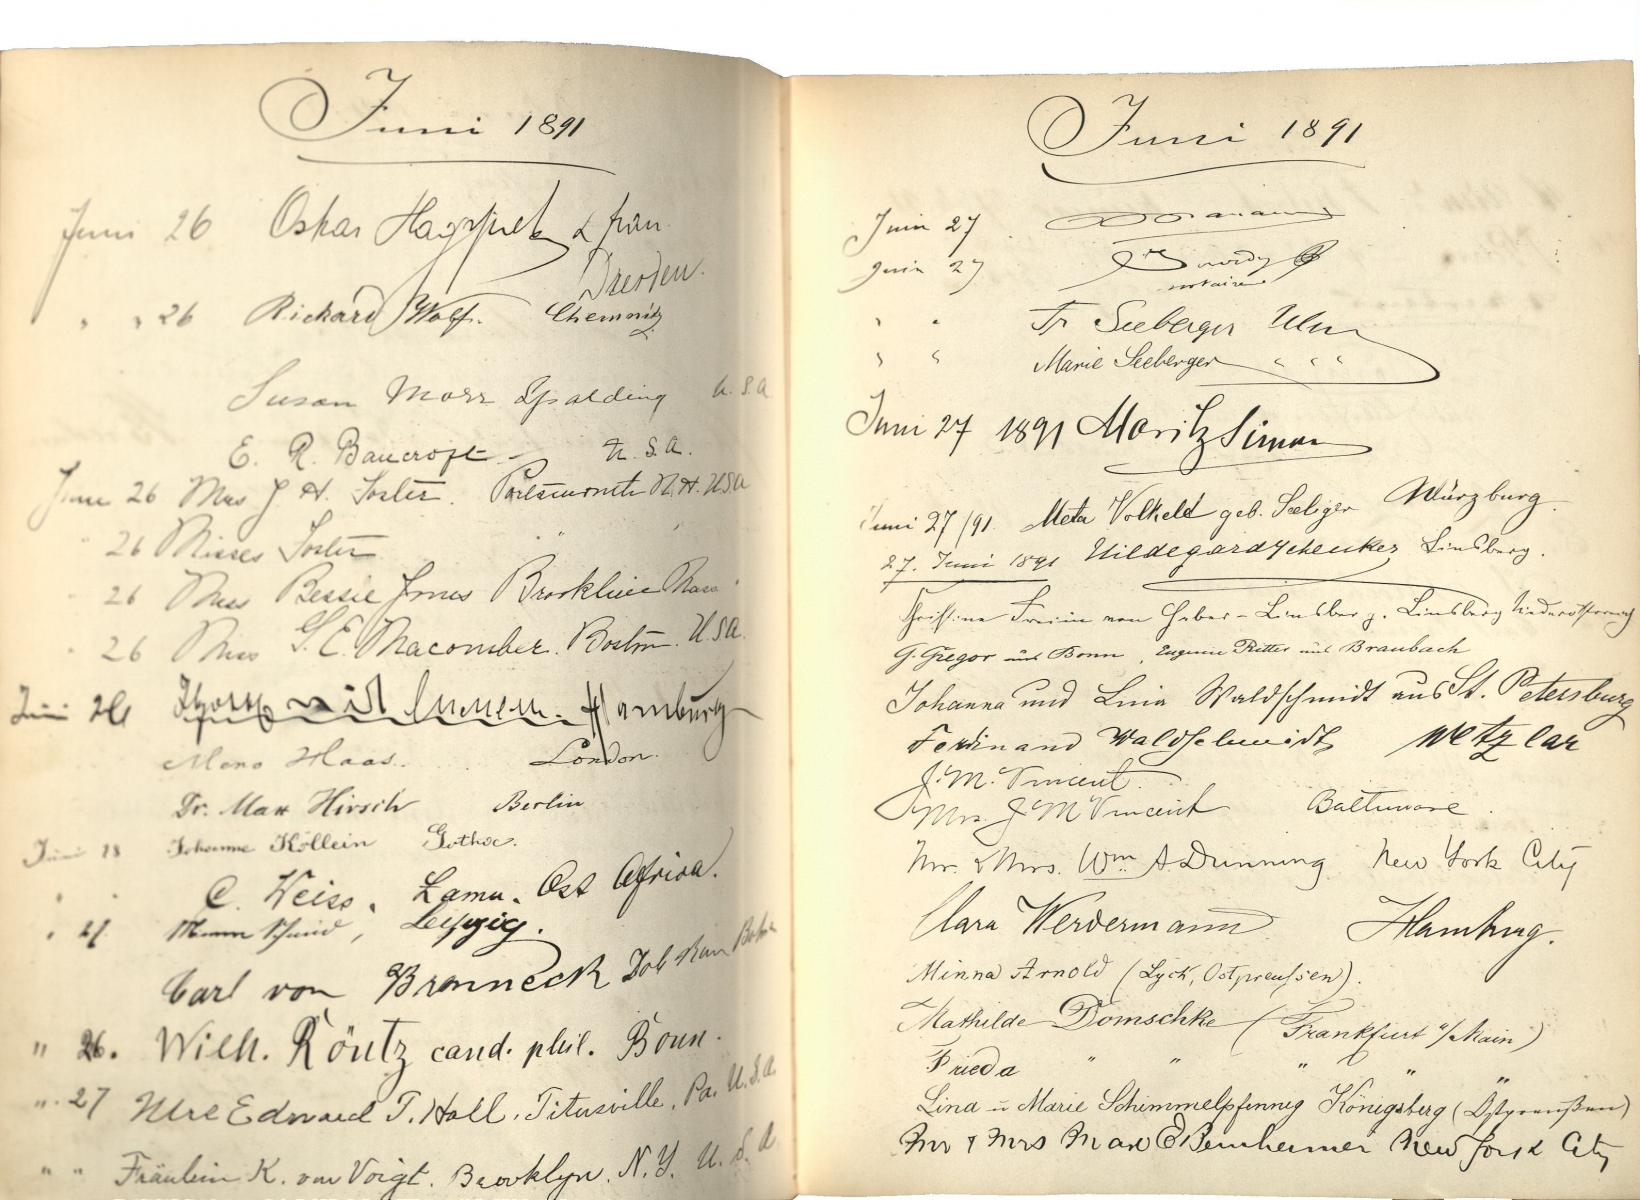 Juni 1891
Juni 26 Oskar & frau
Dresden.
" " 26 Richard Wolf. Chemnitz
Susan Morr Spalding U.S.A
E. R. Bancroft U.S.A.
June 26 Mrs J H. Foster. Portsmouth N.H. USA
" 26 Misses Foster " "
" 26 Miss Bessie Jones Brookline Mass
" 26 Miss G. E. Macomber. Boston. U.S.A.
Juni 26 Hamburg
Mono Haas. London.
Dr. Max Hirsch Berlin
Juni 18 Johanne Köllein Gotha.
" " C. Weiss, Lamu, Ost Afrika.
" 27 Schmid, Leipzig.
Carl von Bronneck
" 26. Wilh. Röntz cand. phil. Bonn.
" 27 Mrs Edward T. Hall, Titusville, Pa. U.S.A.
" " Fräulein K. von Voigt. Brooklyn. N.Y. U.S.A
Juni 1891
Juni 27
Juin 27
notaire
" " Fr Seeberger Ulm
" " Marie Seeberger " " "
Juni 27 1891 Moritz Simon
Juni 27/91. Meta Volkelt geb. Seeliger Würzburg
27. Juni 1891 Hildegard Schenker Linsberg.
Christine Freiin von Haber-Linsberg. Linsberg Niederösterreich
G. Gregor aus Bonn, Eugenie Ritter aus Braubach
Johanna und Lina Waldschmidt aus St. Petersburg
Ferdinand Waldschmidt Wetzlar
J. M. Vincent
Mrs. J M Vincent Baltimore.
Mr. & Mrs. Wm A. Dunning New York City
Clara Werdermann Hamburg.
Minna Arnold (Lyck, Ostpreußen).
Mathilde Domschke (Frankfurt a/Main)
Frieda " " " " "
Lina u Marie Schimmelpfennig Königsberg (Ostpreußen)
Mr & Mrs Max E Bernheimer New York City